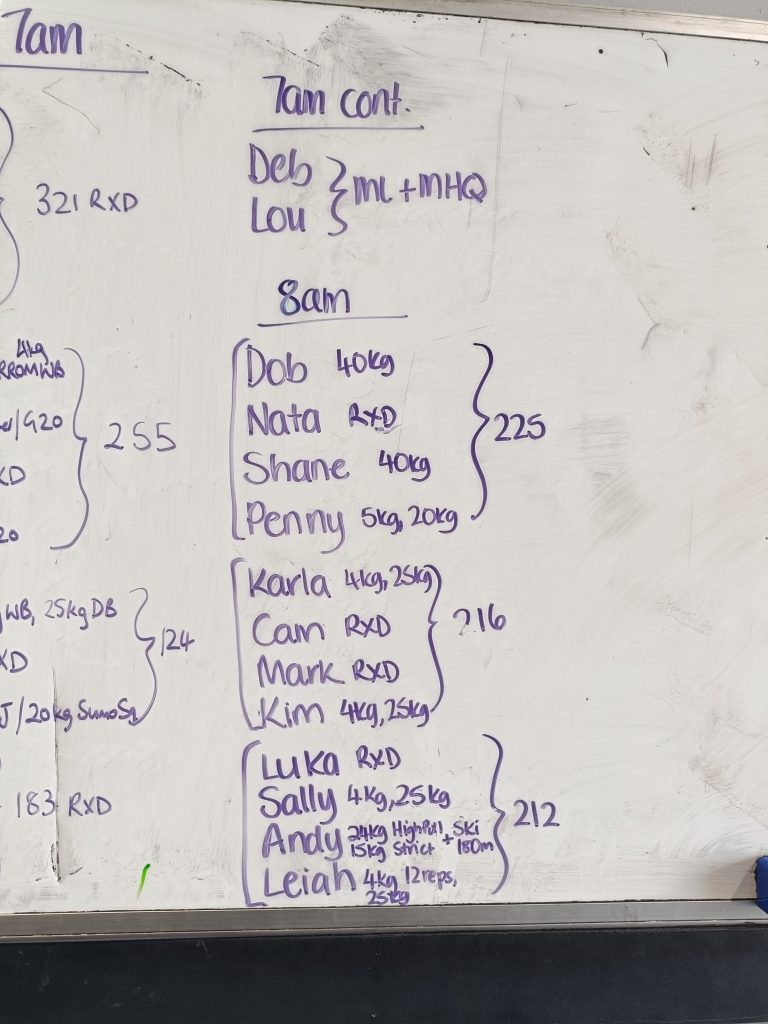 7am
321 RXD
4kg
255
WB, 25kg DB
124
/20kg SumoSq
183 RXD
7am cont.
Deb
Lou
ML + MHQ
8am
Dob 40kg
Nata RXD
Shane 40kg
Penny 5kg, 20kg
225
Karla 4kg, 25kg
Cam RXD
Mark RXD
Kim 4kg, 25kg
216
Luka RXD
Sally 4kg, 25kg
Andy 24kg High Pull + Ski
15kg Strict 180m
Leiah 4kg 12reps,
25kg
212